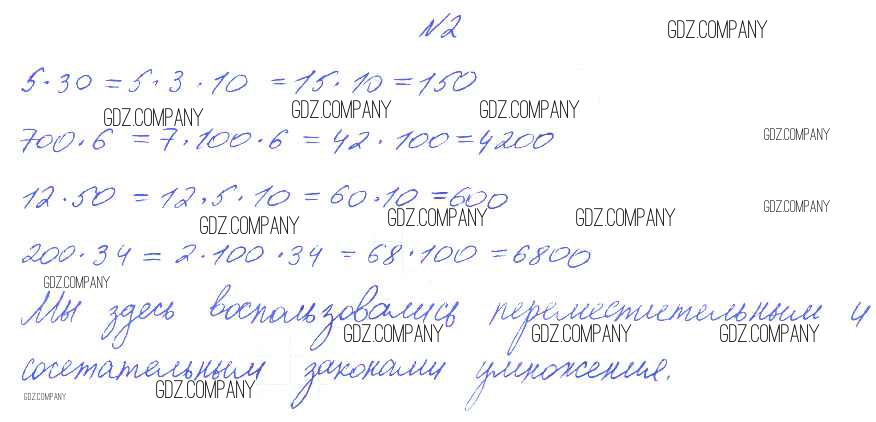 №2 GDZ.COMPANY
5·30 = 5·3·10 = 15·10 = 150
GDZ.COMPANY GDZ.COMPANY GDZ.COMPANY
700·6 = 7·100·6 = 42·100 = 4200 GDZ.COMPANY
12·50 = 12·5·10 = 60·10 = 600 GDZ.COMPANY
GDZ.COMPANY GDZ.COMPANY GDZ.COMPANY
200·34 = 2·100·34 = 68·100 = 6800
GDZ.COMPANY
Мы здесь воспользовались переместительным и
GDZ.COMPANY GDZ.COMPANY GDZ.COMPANY
сочетательным законами умножения.
GDZ.COMPANY GDZ.COMPANY